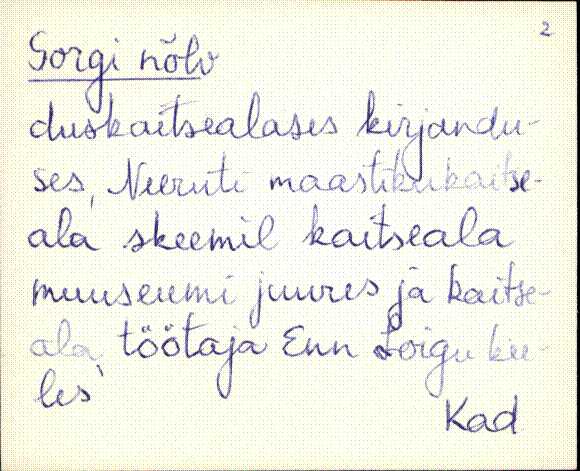 2
Sorgi nõlv
duskaitsealases kirjandu-
ses, Neeruti maastikukaitse-
ala skeemil kaitseala
muuseumi juures ja kaitse-
ala töötaja Enn Loigu kee-
les
Kad